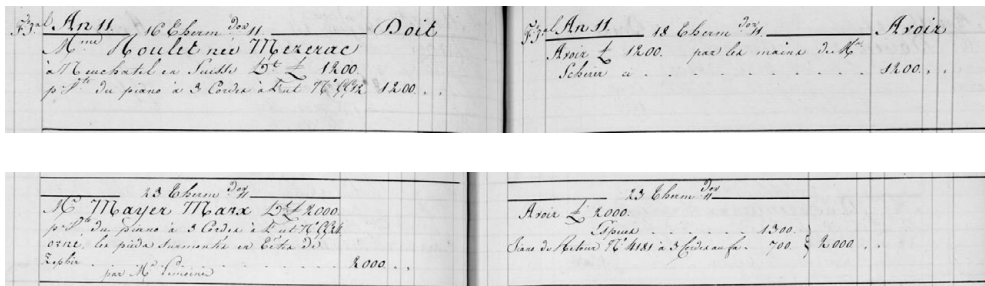 An 11 16 Therm dor 11 Doit
Mme Houlet née Mezerac
à Neuchatel en Suisse Dt £ 1200
pr Pte du piano à 3 Cordes à l'ut No 1200
An 11 18 Therm dor 11 Avoir
Avoir £ 1200. par les mains de Mr
Scherer ci 1200
23 Therm dor 11
Mr Mayer Marx Dt £ 2000
pr Pte du piano à 3 Cordes à l'ut No
orné, les pieds surmontés en Tête de
Zephir 2000
par Mr Lemoine
23 Therm dor 11
Avoir £ 2000.
Espèces 1300.
piano de Retour No 4181 à 3 Cordes au fa 700. 2000